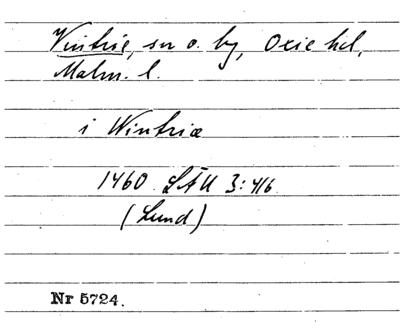 Vintrie, sn o. by, Oxie hd,
Malm. l.
i Wintriæ
1460 LÄU 3:416
(Lund)
Nr 5724.